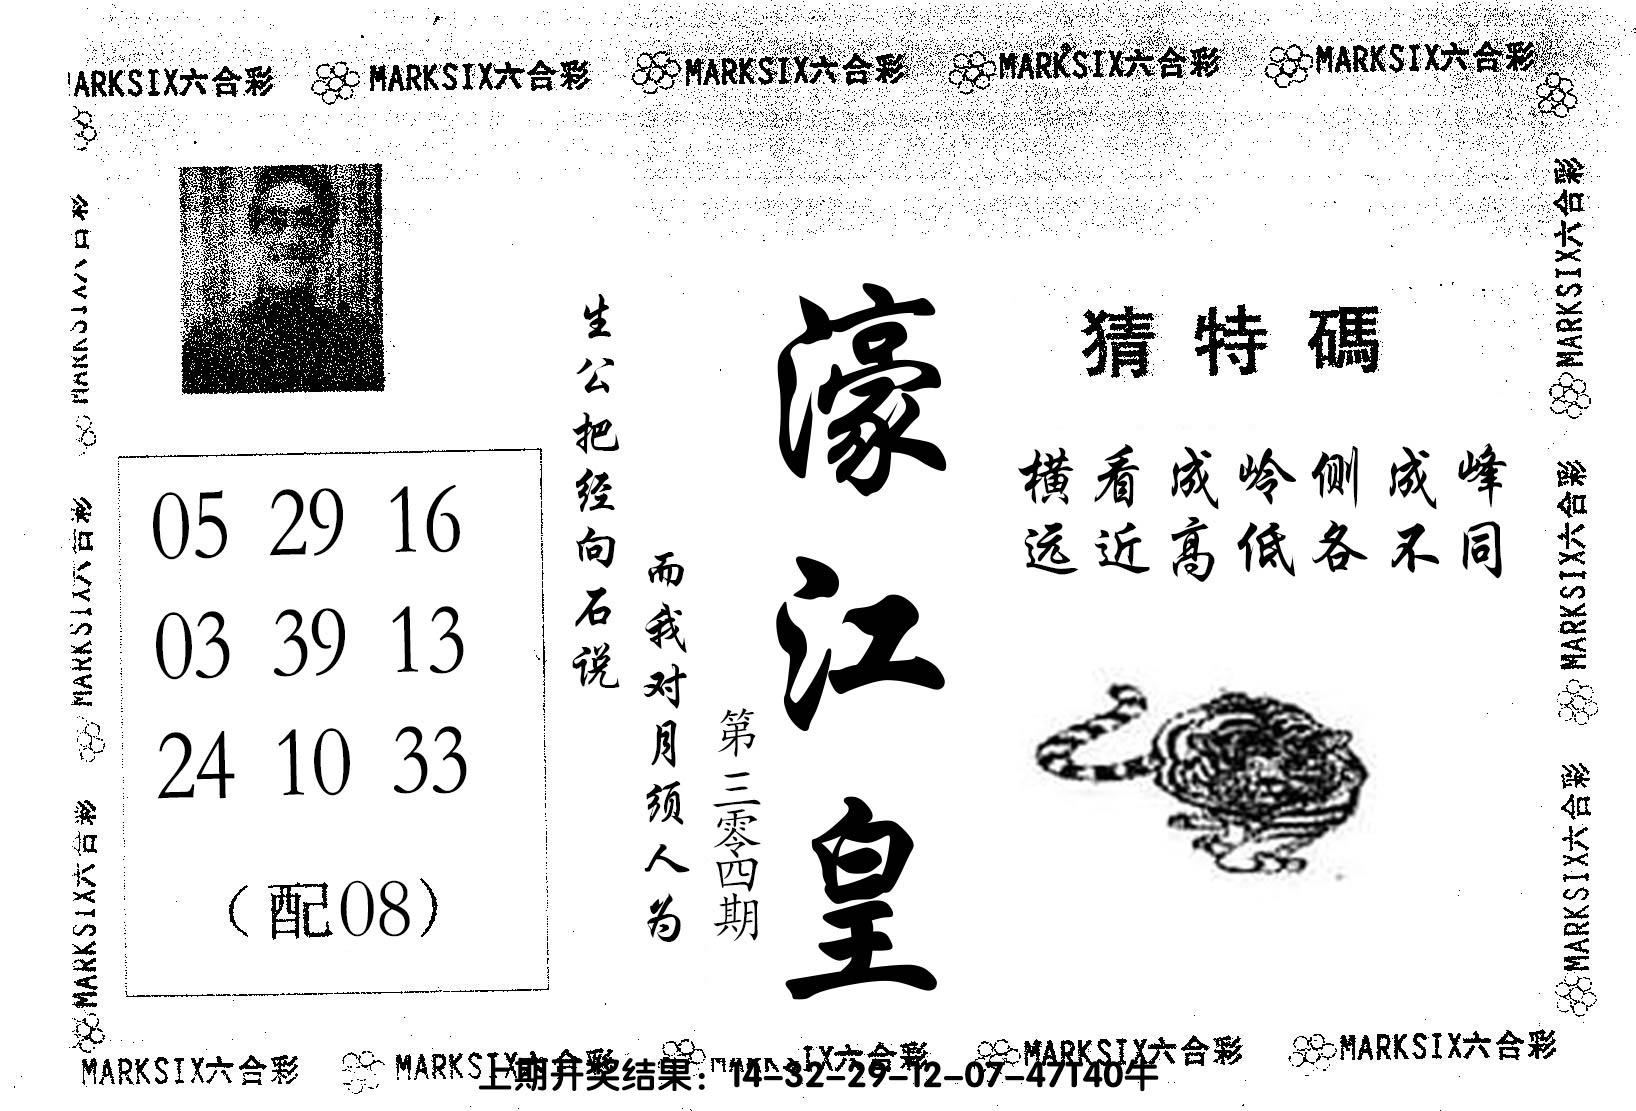 MARKSIX六合彩 MARKSIX六合彩 MARKSIX六合彩 MARKSIX六合彩 MARKSIX六合彩
濠江皇
第三零四期
猜特碼
横看成岭侧成峰
远近高低各不同
生公把经向石说
而我对月须人为
05 29 16
03 39 13
24 10 33
(配08)
MARKSIX六合彩
MARKSIX六合彩
MARKSIX六合彩
MARKSIX六合彩
MARKSIX六合彩
MARKSIX六合彩
MARKSIX六合彩 MARKSIX六合彩 MARKSIX六合彩 MARKSIX六合彩 MARKSIX六合彩
上期开奖结果：14-32-29-12-07-47T40牛